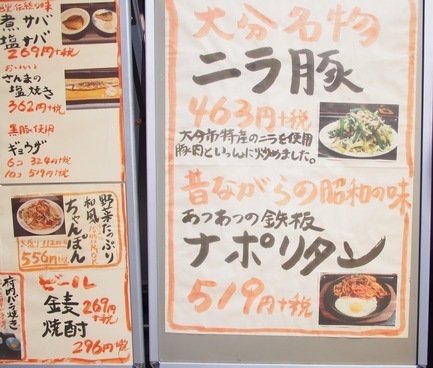 伝統の味
煮サバ
塩サバ
269円+税
さんまの
塩焼き
362円+税
黒豚使用
ギョウザ
6コ 324円+税
10コ 519円+税
野菜たっぷり
和風
ちゃんぽん
556円+税
ビール
金麦 269円+税
焼酎
296円+税
府内バラ焼き
大分名物
ニラ豚
463円+税
大分市特産のニラを使用
豚肉といっしょに炒めました。
昔ながらの昭和の味
あつあつの鉄板
ナポリタン
519円+税